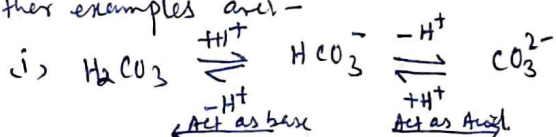 ther examples are:-
+H⁺ -H⁺
(i) H₂CO₃ ⇌ HCO₃⁻ ⇌ CO₃²⁻
-H⁺ +H⁺
Act as base Act as Acid